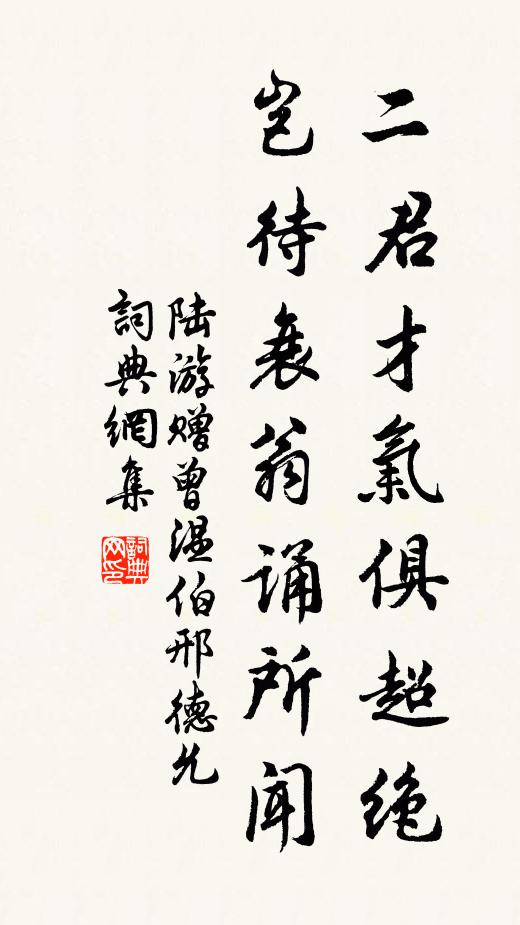 二君才氣俱超绝
岂待衰翁诵所闻
陆游赠曾温伯邢德允
詞典網集
詞典网印